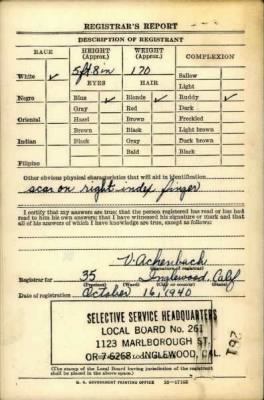 REGISTRAR'S REPORT
DESCRIPTION OF REGISTRANT
RACE HEIGHT (Approx.) WEIGHT (Approx.) COMPLEXION
White ✓ 5 ft 8 in 170 Sallow
EYES HAIR Light
Negro Blue ✓ Blonde ✓ Ruddy ✓
Gray Red Dark
Oriental Hazel Brown Freckled
Brown Black Light brown
Indian Black Gray Dark brown
Bald Black
Filipino
Other obvious physical characteristics that will aid in identification
scar on right index finger
I certify that my answers are true; that the person registered has read or has had
read to him his own answers; that I have witnessed his signature or mark and that
all of his answers of which I have knowledge are true, except as follows:
V. Achenbach
(Signature of registrar)
Registrar for 35 Inglewood, Calif
(Precinct) (Ward) (City or county) (State)
Date of registration October 16, 1940
SELECTIVE SERVICE HEADQUARTERS
LOCAL BOARD No. 261
1123 MARLBOROUGH ST.
OR 7-6268 INGLEWOOD, CAL.
261
(The stamp of the Local Board having jurisdiction of the registrant
shall be placed in the above space.)
U. S. GOVERNMENT PRINTING OFFICE 16—17168